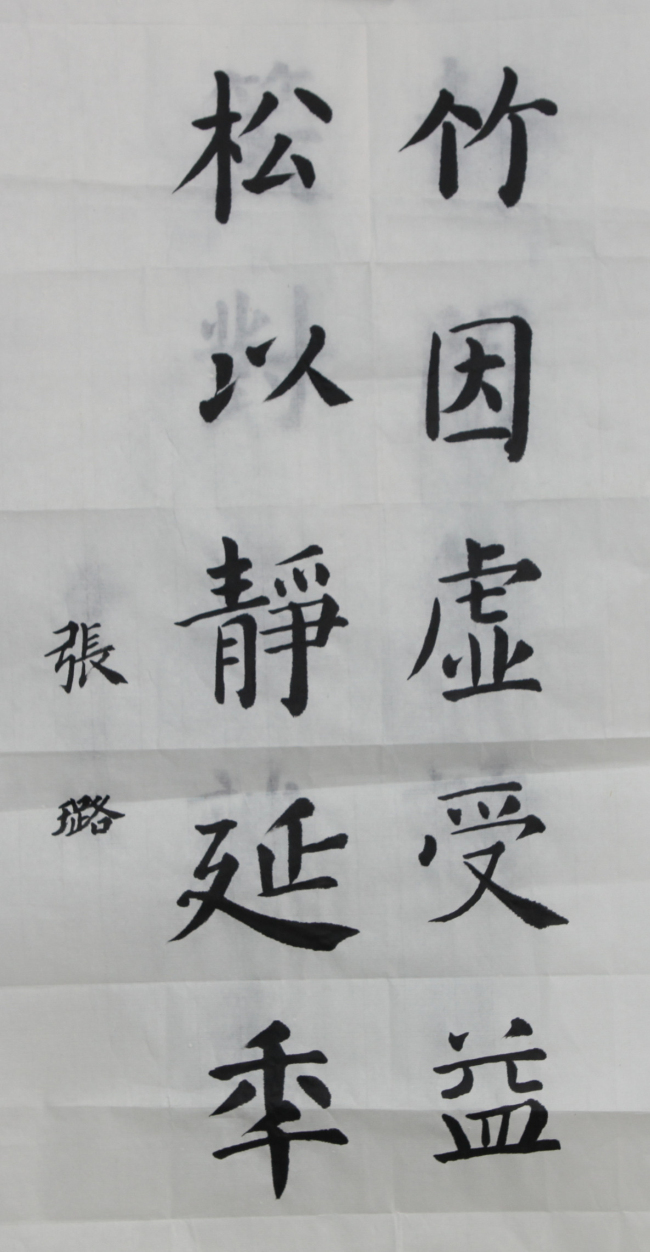 竹因虛受益
松以靜延年
張璐